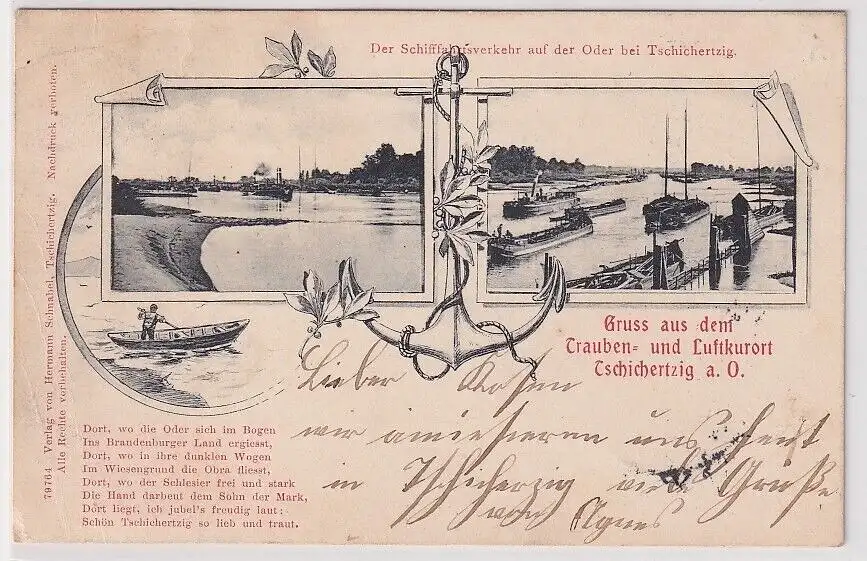 Der Schifffahrtsverkehr auf der Oder bei Tschichertzig.
79764 Verlag von Hermann Schnabel, Tschichertzig. Nachdruck verboten.
Alle Rechte vorbehalten.
Gruss aus dem
Trauben- und Luftkurort
Tschichertzig a. O.
Lieber
wir amüsieren uns heut
in Tschicherzig viele Grüße
von Agnes
Dort, wo die Oder sich im Bogen
Ins Brandenburger Land ergiesst,
Dort, wo in ihre dunklen Wogen
Im Wiesengrund die Obra fliesst,
Dort, wo der Schlesier frei und stark
Die Hand darbeut dem Sohn der Mark,
Dort liegt, ich jubel's freudig laut:
Schön Tschichertzig so lieb und traut.